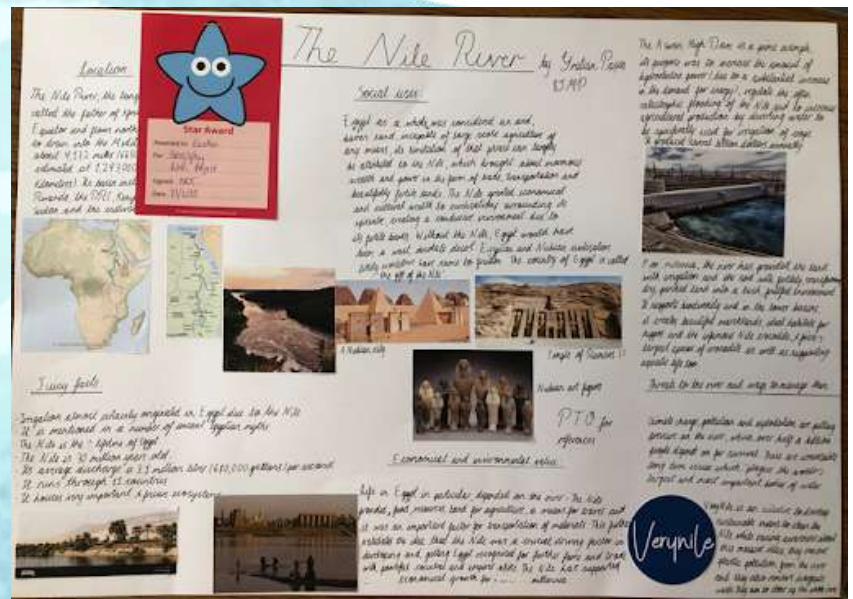 The Nile River
Location
The Nile River, the
called the father of
Equator and flows north
to drain into the
about 4,132 miles
estimated at 1,293,000
kilometers). The basin
Rwanda, the DRC, Kenya
Sudan and the
Star Award
Presented to:
For: Geography
Signed:
Date:
Social uses:
Egypt as a whole was considered an arid,
barren land incapable of large scale agriculture of
any means, its limitation of that greed can largely
be attributed to the Nile, which brought about enormous
wealth and power in the form of trade, transportation and
beautifully fertile lands. The Nile granted economical
and cultural wealth to civilisations surrounding its
upstate, creating a conducive environment due to
its fertile banks. Without the Nile, Egypt would have
been a vast, desolate desert. Egyptian and Nubian civilisation
The country of Egypt is called
the gift of the Nile
A Nubian city
Temple of Ramses II
Nubian art figure
PTO for
references
Juicy facts
Irrigation almost entirely originated in Egypt due to the Nile
It is mentioned in a number of ancient Egyptian myths
The Nile is the lifeline of Egypt
The Nile is 30 million years old
Its average discharge is 3.1 million litres (680,000 gallons) per second
It runs through 11 countries
It houses very important African ecosystems
Economical and environmental value
Life in Egypt in particular depended on the river. The Nile
provided, food resources, land for agriculture, a means for travel and
it was an important factor for transportation of materials. This further
validates the idea that the Nile was a crucial driving factor in
developing and getting Egypt recognised for further fame and trade
with powerful countries and empires alike. The Nile has supported
economical growth for millennia
The Aswan High Dam is a prime example,
its purpose was to increase the amount of
hydroelectric power (due to a substantial increase
in the demand for energy), regulate the often
catastrophic flooding of the Nile and to increase
agricultural production by diverting water to
be specifically used for irrigation of crops
It produced several billion dollars annually
For millennia, the river has provided the land
with irrigation and the soil with fertility transforming
dry, parched land into a lush, fruitful environment
It supports biodiversity and in the lower basins,
it creates beautiful marshlands, ideal habitats for
hippos and the infamous Nile crocodile, Africa's
largest species of crocodile as well as supporting
aquatic life too
Threats to the river and ways to manage them
Climate change, pollution and exploitation are putting
pressure on the river, which over half a billion
people depend on for survival. These are unresolvable
long term issues which plague the world's
largest and most important bodies of water
VeryNile
VeryNile is an initiative to develop
sustainable means to clean the
Nile while raising awareness about
this massive issue, they remove
plastic pollution from the river